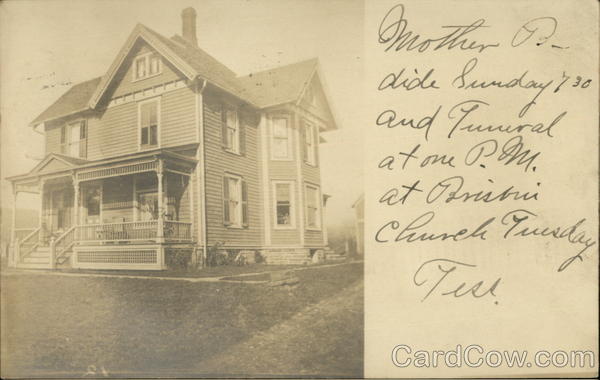 Mother B-
dide Sunday 7 30
and Funeral
at one P.M.
at Brisbin
Church Tuesday
Tess.
CardCow.com